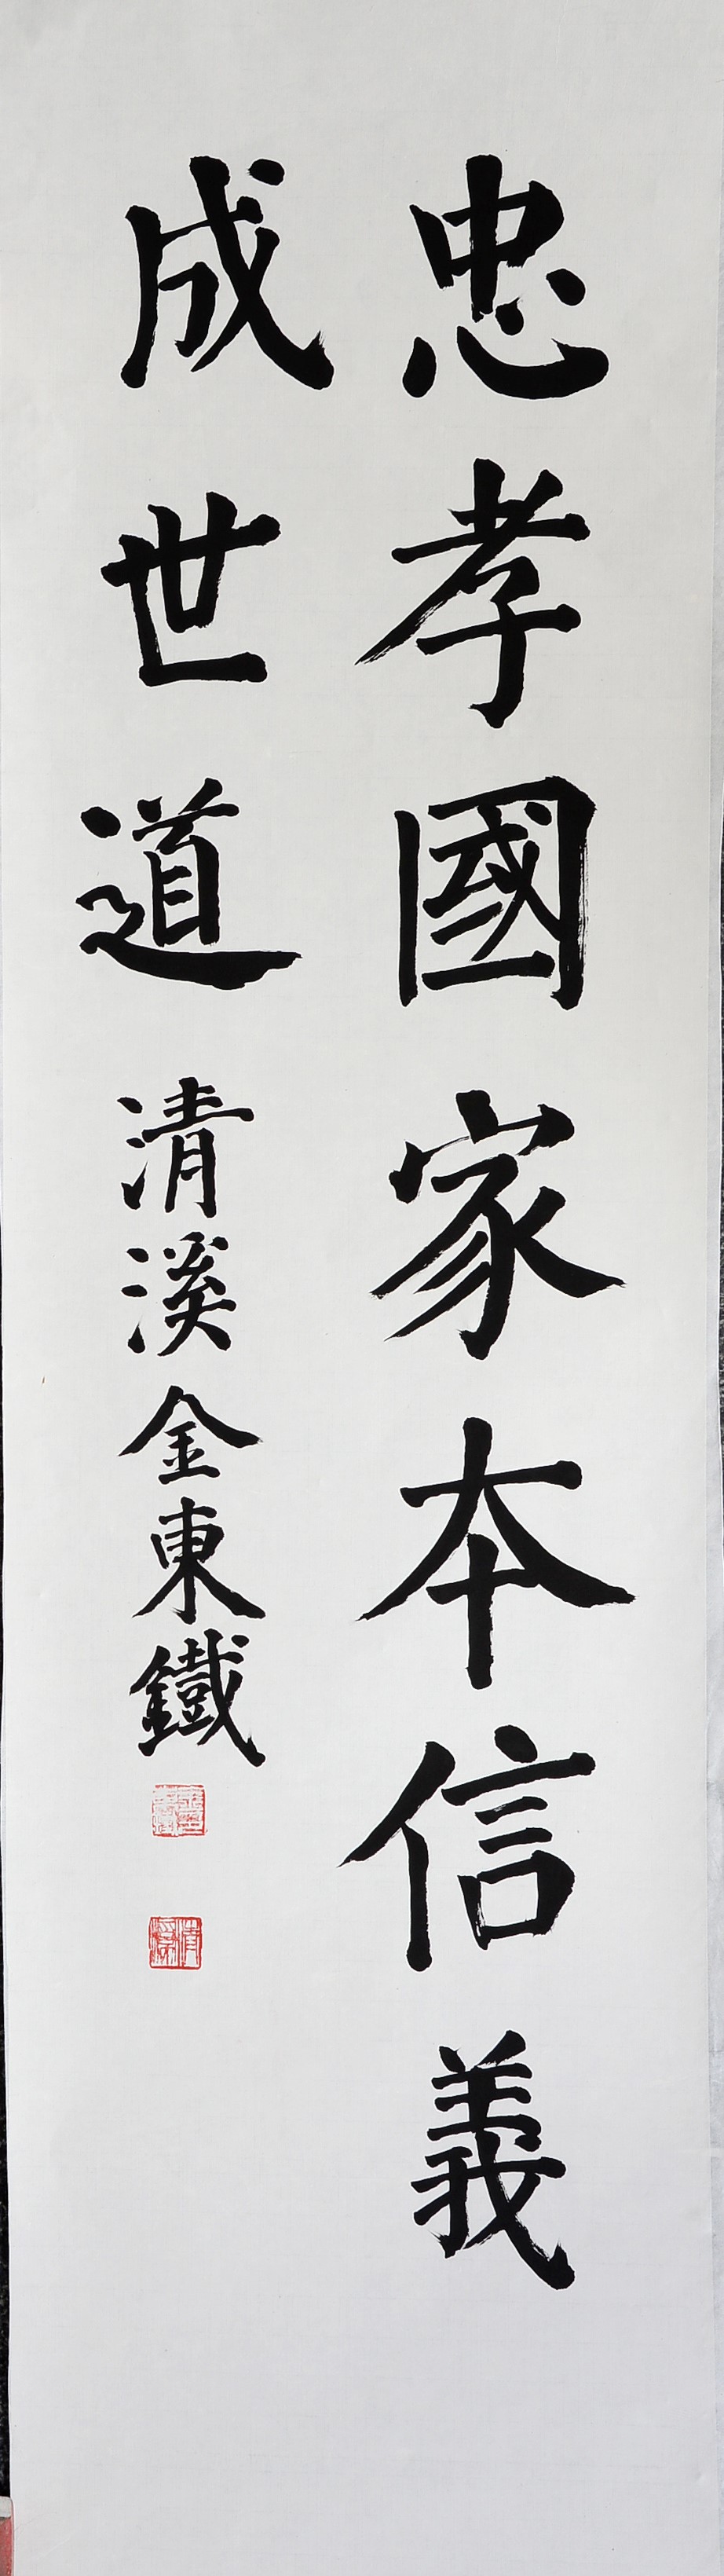 忠孝國家本信義
成世道 清溪金東鐵